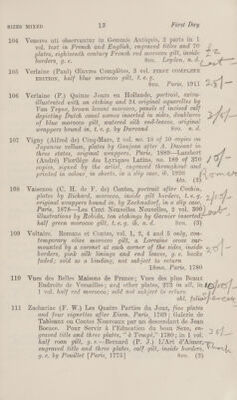 SIZES MIXED 13 First Day
104 Veneres uti observantur in Gemmis Antiquis, 2 parts in 1
vol, text in French and English, engraved titles and 70
plates, eighteenth century French red morocco gilt, inside
borders, g. e. 8vo. Leyden, n. d.
105 Verlaine (Paul) Œuvres Complètes, 5 vol. FIRST COMPLETE
EDITION, half blue morocco gilt, t. e. g.
8vo. Paris, 1911
106 Verlaine (P.) Quinze Jours en Hollande, portrait, extra-
illustrated with an etching and 24 original aquarelles by
Van Tryne, brown levant morocco, panels of incised calf
depicting Dutch canal scenes inserted in sides, doublures
of blue morocco gilt, watered silk end-leaves, original
wrappers bound in, t. e. g. by Durvand 8vo. n. d.
107 Vigny (Alfred de) Cinq-Mars, 2 vol. no. 18 of 10 copies on
Japanese vellum, plates by Gaujean after A. Dawant in
three states, original wrappers, Paris, 1889—Lambert
(André) Florilège des Lyriques Latins, no. 169 of 370
copies, signed by the artist, engraved throughout and
printed in colour, in sheets, in a slip case, ib. 1926
4to. (3)
108 Voisenon (C. H. de F. de) Contes, portrait after Cochin,
plates by Richard, morocco, inside gilt borders, t. e. g.
original wrappers bound in, by Zaehnsdorf, in a slip case,
Paris, 1878—Les Cent Nouvelles Nouvelles, 2 vol. 300
illustrations by Robida, ten etchings by Garnier inserted,
half green morocco gilt, t. e. g. ib. n. d. 8vo. (3)
109 Voltaire. Romans et Contes, vol. 1, 2, 4 and 5 only, con-
temporary olive morocco gilt, a Lorraine cross sur-
mounted by a coronet at each corner of the sides, inside
borders, pink silk linings and end leaves, g. e. backs
faded; sold as a binding, not subject to return
18mo. Paris, 1780
110 Vues des Belles Maisons de France; Vues des plus Beaux
Endroits de Versailles; and other plates, 223 in all, in
1 vol. half red morocco; sold not subject to return
obl. folio
111 Zachariae (F. W.) Les Quatre Parties du Jour, five plates
and four vignettes after Eisen, Paris, 1769; Galerie de
Tableaux ou Contes Nouveaux par un descendant de Jean
Bocace. Pour Servir à l'Education du beau Sexe, en-
graved title and three plates, "à Tempé," 1780; in 1 vol.
half roan gilt, g. e.—Bernard (P. J.) L'Art d'Aimer,
engraved title and three plates, calf gilt, inside borders,
g. e. by Pouillet [Paris, 1775] 8vo. (2)